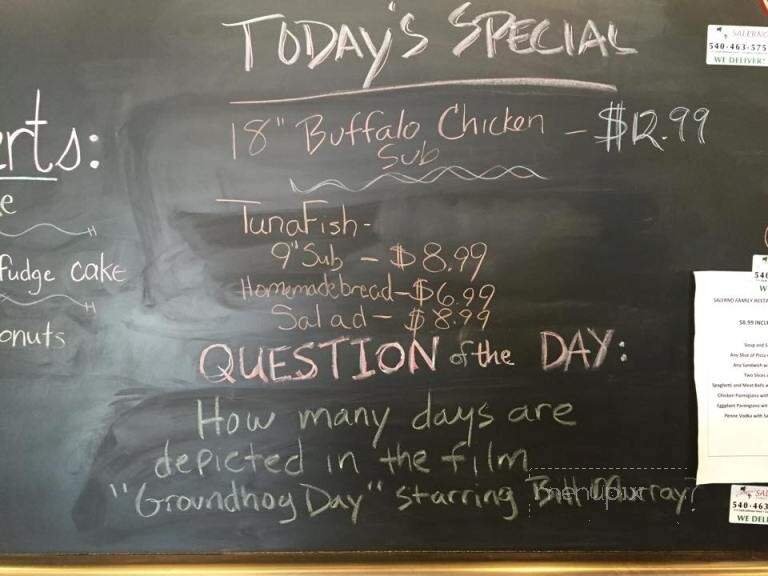 TODAY'S SPECIAL
18" Buffalo Chicken - $12.99
Sub
TunaFish-
9" Sub - $8.99
Homemade bread-$6.99
Salad - $8.99
QUESTION of the DAY:
How many days are
depicted in the film
"Groundhog Day" starring Bill Murray?
menupix
erts:
e
fudge cake
onuts
SALERNO
540-463-575
WE DELIVER!
540
W
SALERNO FAMILY RESTA
$8.99 INCLU
Soup and S
Any Slice of Pizza
Any Sandwich w
Two Slices
Spaghetti and Meat Balls
Chicken Parmigiana with
Eggplant Parmigiana wit
Penne Vodka with Sa
SAL
540-463
WE DELI